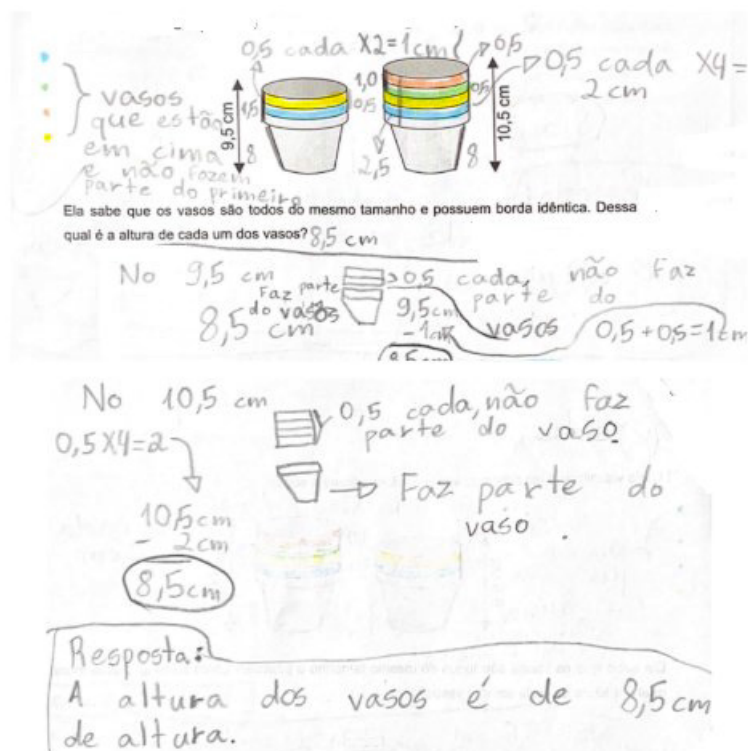 0,5 cada X2=1cm
0,5
0,5 cada X4=
2 cm
vasos
que estão
em cima
e não fazem
parte do primeiro
9,5 cm
1,5
8
1,0
0,5
0,5
2,5
8
10,5 cm
Ela sabe que os vasos são todos do mesmo tamanho e possuem borda idêntica. Dessa
qual é a altura de cada um dos vasos? 8,5 cm
No 9,5 cm
Faz parte
do vasos
8,5 cm
0,5 cada, não faz
parte do
vasos
9,5cm
- 1cm
8,5cm
0,5+0,5=1cm
No 10,5 cm
0,5 cada, não faz
parte do vaso
0,5X4=2
Faz parte do
vaso.
10,5cm
- 2cm
8,5cm
Resposta:
A altura dos vasos é de 8,5cm
de altura.